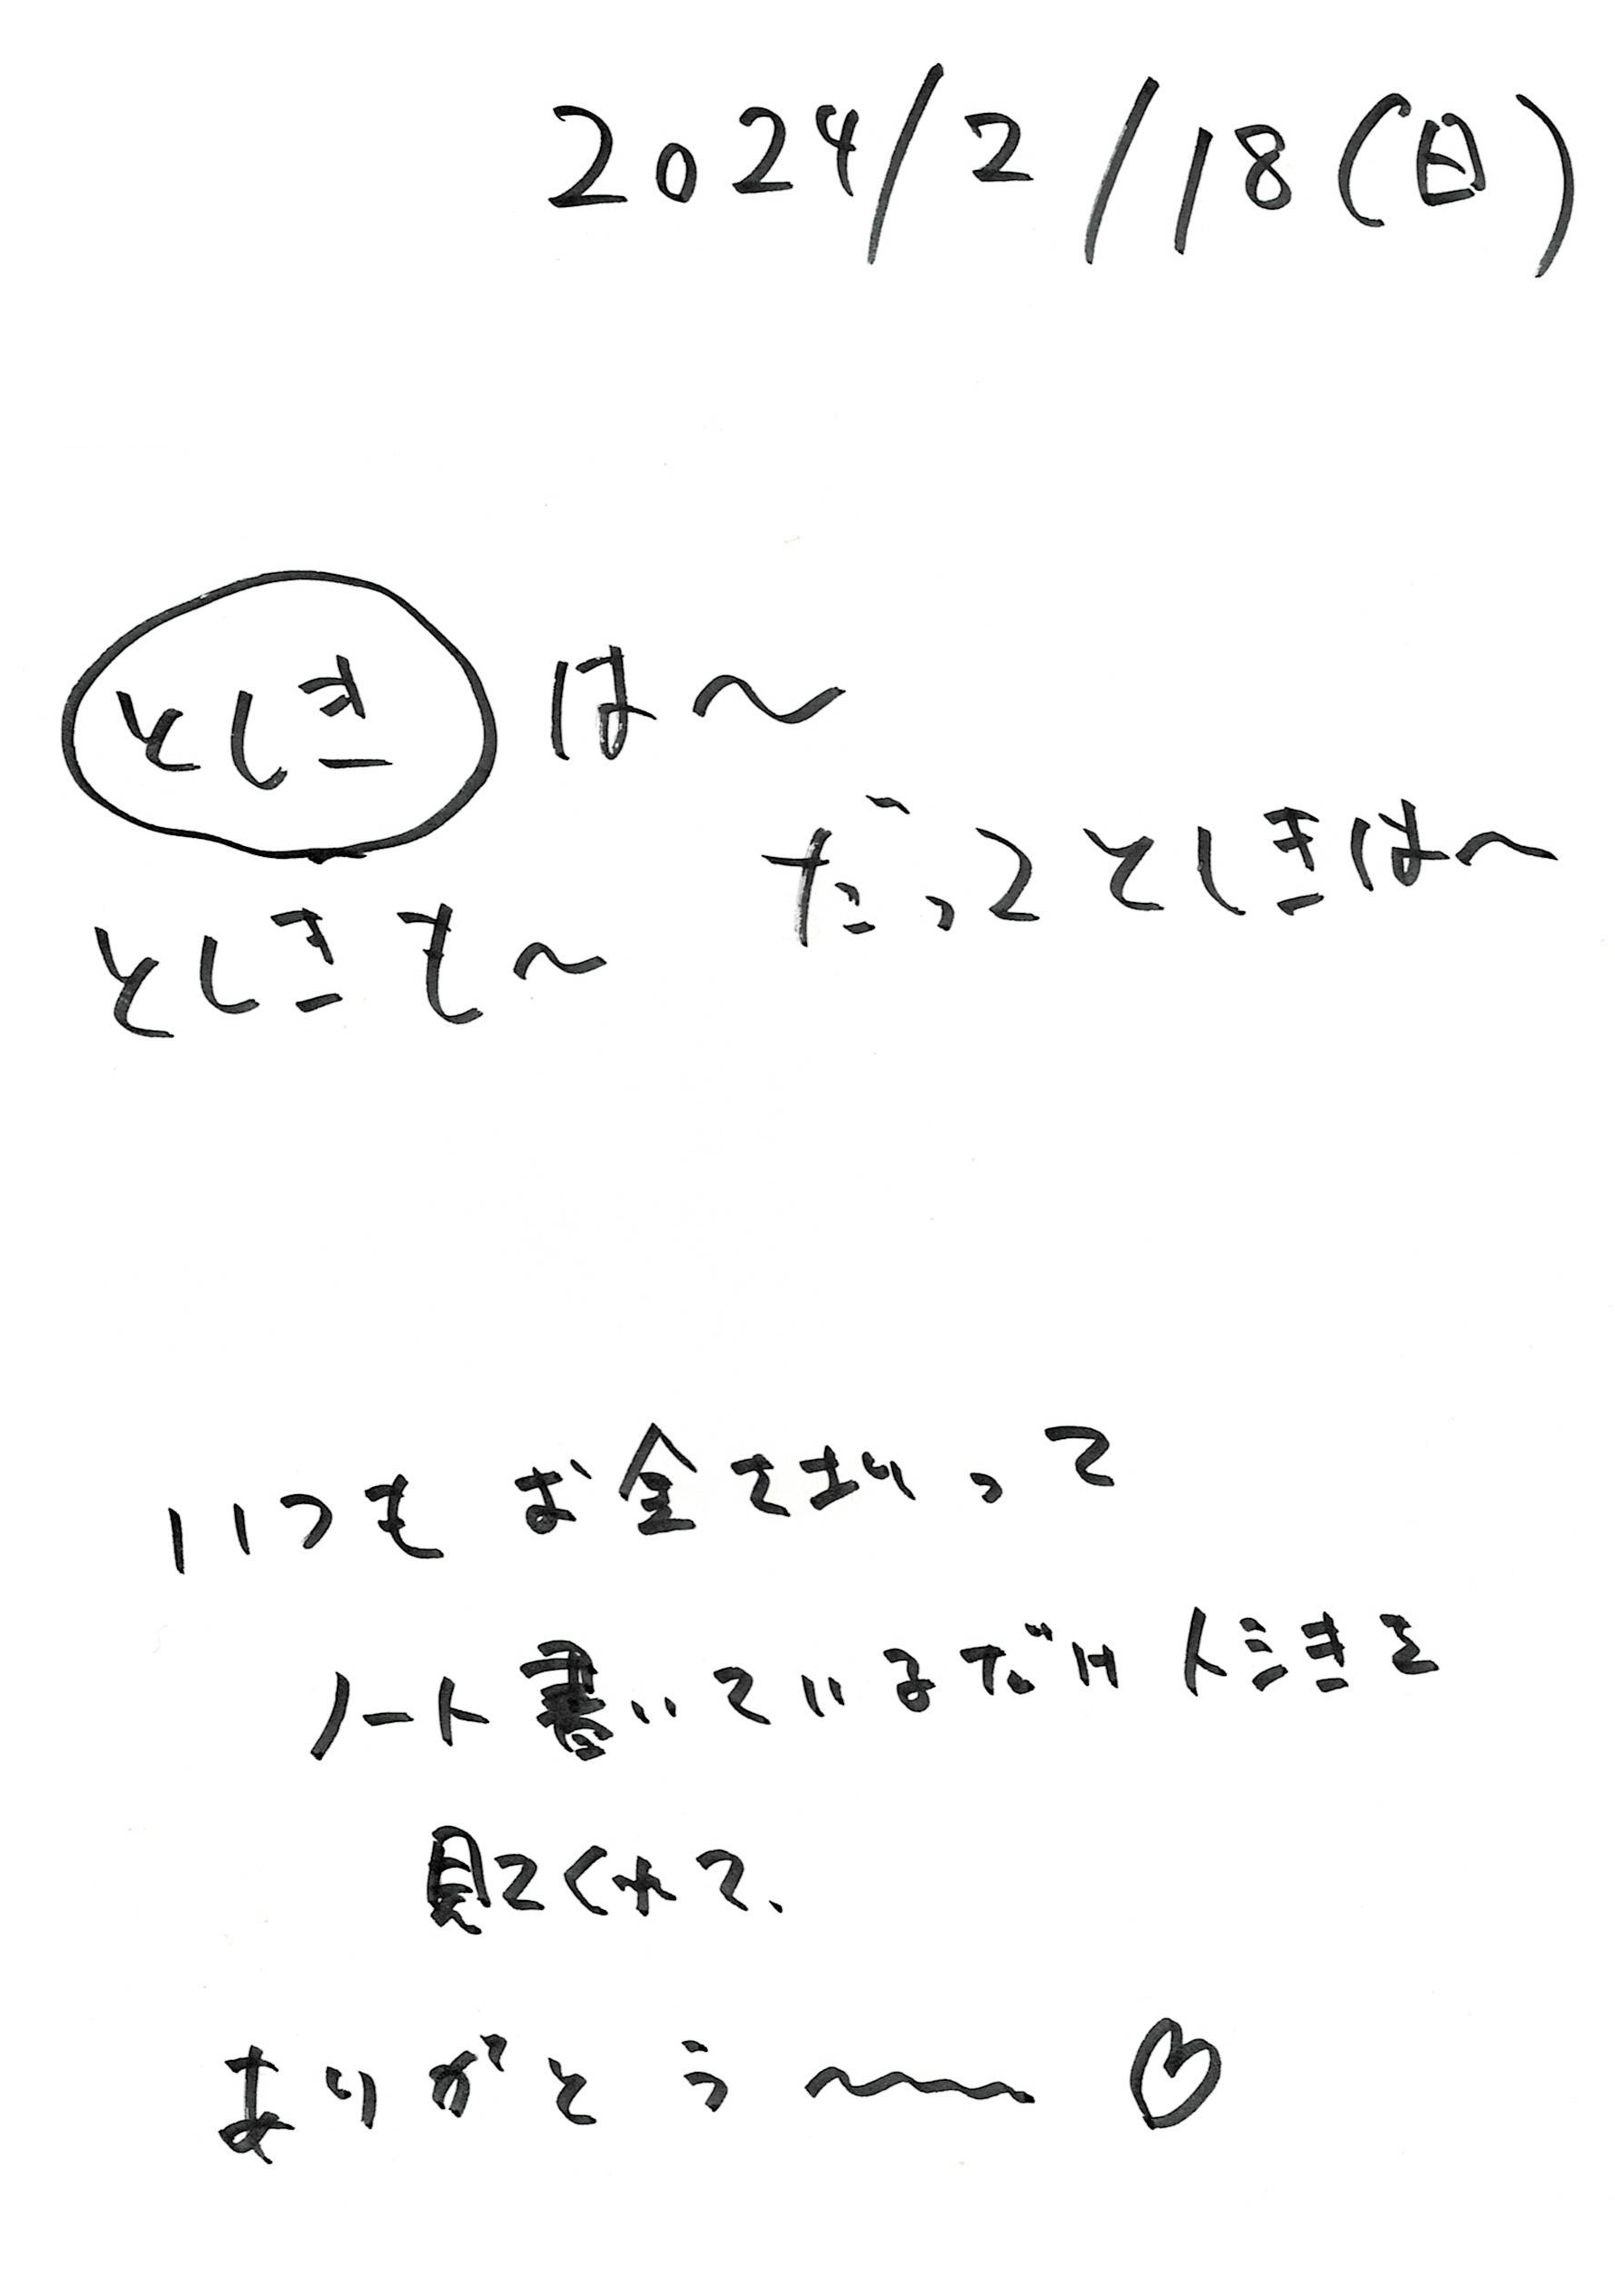 2024/2/18(日)
としきは〜
だってとしきは〜
としきも〜
いつもお金を払って
ノート書いているだけ
見てくれて、
ありがとう〜♡